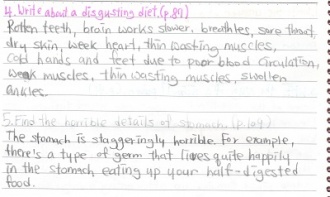 4. Write about a disgusting diet. (p.89)
Rotten teeth, brain works slower, breathles, sore throat,
dry skin, week heart, thin wasting muscles,
cold hands and feet due to poor blood circulation,
weak muscles, thin wasting muscles, swollen
ankles.
5. Find the horrible details of stomach. (p.104)
The stomach is staggeringly horrible. For example,
there's a type of germ that lives quite happily
in the stomach eating up your half-digested
food.